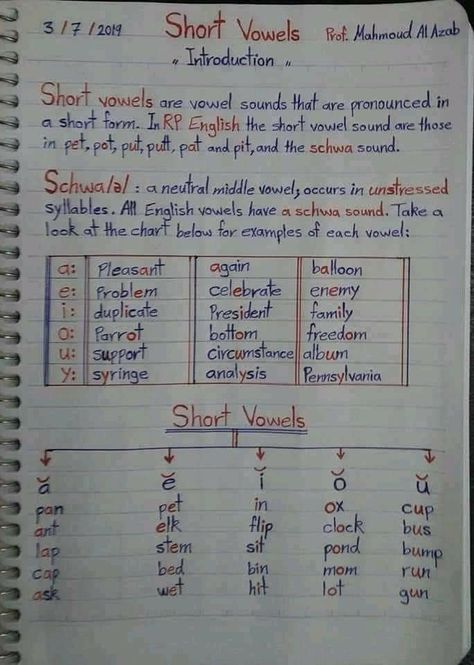 3/7/2019 Short Vowels Prof. Mahmoud Al Azab
"Introduction"
Short vowels are vowel sounds that are pronounced in
a short form. In RP English the short vowel sound are those
in pet, pot, put, putt, pat and pit, and the schwa sound.
Schwa/ə/: a neutral middle vowel, occurs in unstressed
syllables. All English vowels have a schwa sound. Take a
look at the chart below for examples of each vowel:
a: Pleasant again balloon
e: Problem celebrate enemy
i: duplicate President family
o: Parrot bottom freedom
u: support circumstance album
y: syringe analysis Pennsylvania
Short Vowels
ă ĕ ĭ ŏ ŭ
pan pet in ox cup
ant elk flip clock bus
lap stem sit pond bump
cap bed bin mom run
ask wet hit lot gun